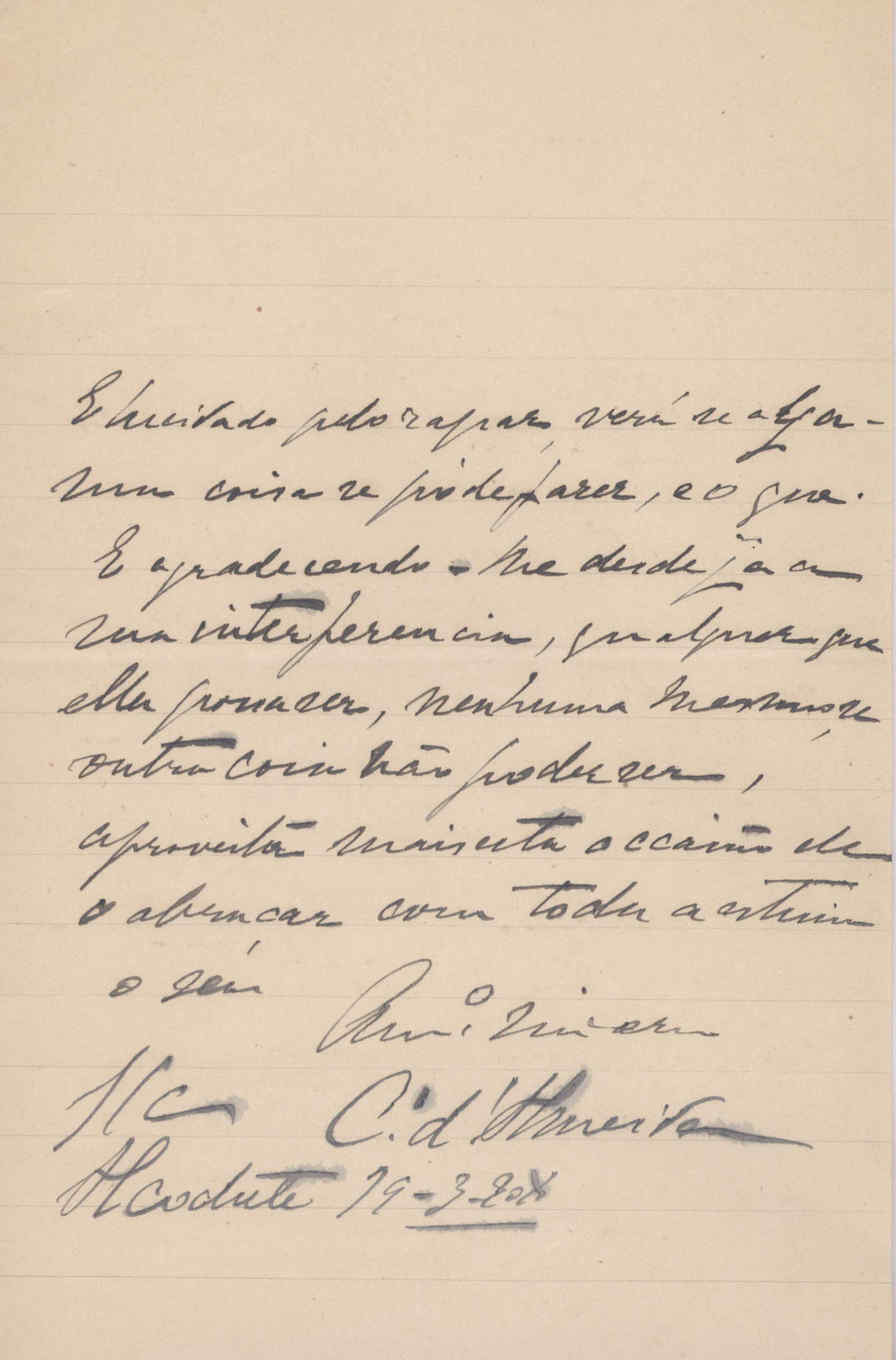 Elucidado pelo rapaz, verá se algu-
ma coisa se póde fazer, e o que.
E agradecendo-lhe desde já a
sua interferencia, qualquer que
ella possa ser, nenhuma mesmo, se
outra coisa não poder ser,
aproveita mais esta occasião de
o abraçar com toda a estima
o seu
Amº. sincero
S/C
C. d'Almeida
Alcochete 19-3-